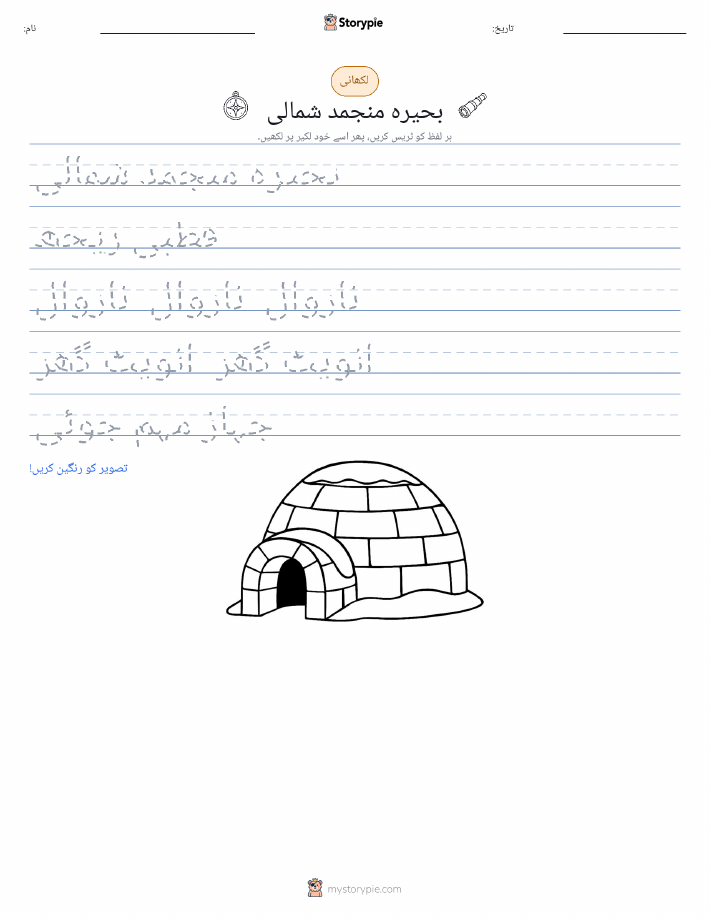 نام:
Storypie
تاریخ:
لکھائی
بحیرہ منجمد شمالی
ہر لفظ کو ٹریس کریں، پھر اسے خود لکیر پر لکھیں۔
بحیرہ منجمد شمالی
قطبی ریچھ
ناروال ناروال ناروال
انویٹ گھر انویٹ گھر
جہاز مہم جوئی
تصویر کو رنگین کریں!
mystorypie.com